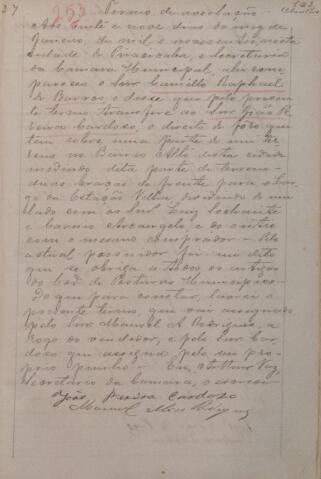 37 253 123
Termo de
Aos vinte e nove dias do mez de
Janeiro, de mil e novecentos, nesta
cidade de Piracicaba, e Secretaria
da Camara Municipal, ahi com-
pareceu o Snr. Camillo Raphael
de Barros e disse que pelo presen-
te termo transfere ao Snr. João Pe-
reira Cardoso, o direito de fôro que
tem sobre uma parte de um ter-
reno no Bairro Alto desta cidade
medindo dita parte de terreno
duas braças de frente para o lar-
go da Estação Velha, dividindo de um
lado com os Snr. Luiz
e Carmo Arcangelo, e do outro
com o mesmo comprador. Pelo
actual possuidor foi-me dito
que se obriga a todos os artigos
do Cod. de Posturas Municipaes.
Do que para constar, lavrei o
presente termo, que vai assignado
pelo Snr. Manoel A. Rodrigues, a
rogo do vendedor, e pelo Snr. Car-
doso que assigna pelo seu pro-
prio punho. Eu, Arthur Vaz,
Secretario da Camara, o escrevi
João Pereira Cardoso
Manoel Alves Rodrigues